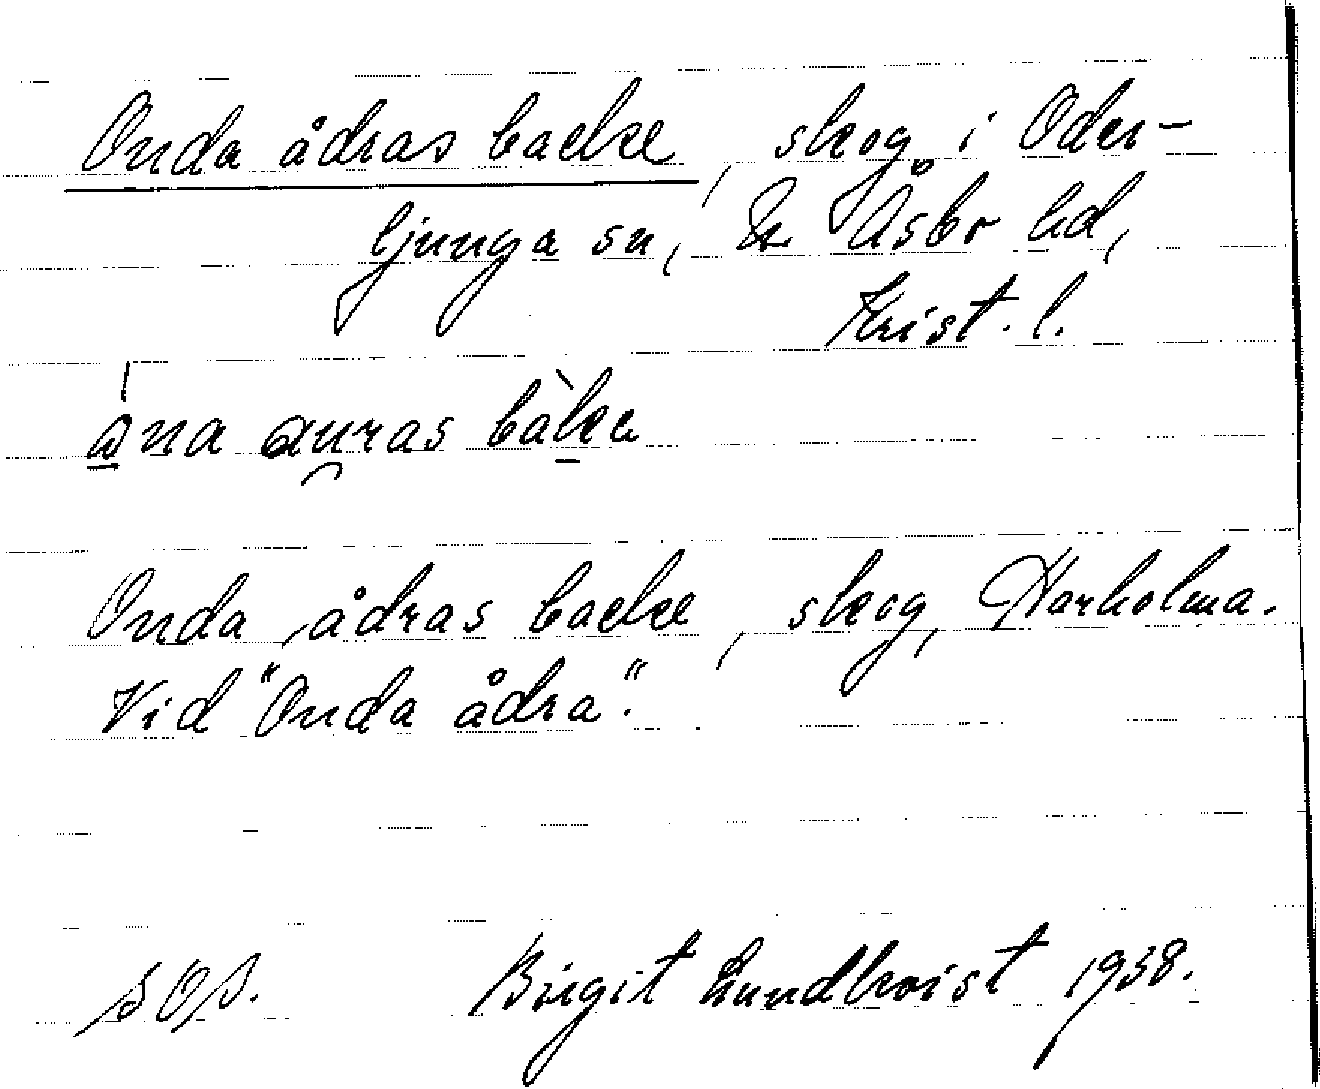 Onda ådras backe, skog i Oder-
ljunga sn, N Åsbo hd,
Krist. l.
Onda ådras backe, skog, Harholma.
Vid "Onda ådra".
SOS. Birgit Lundkvist 1938.